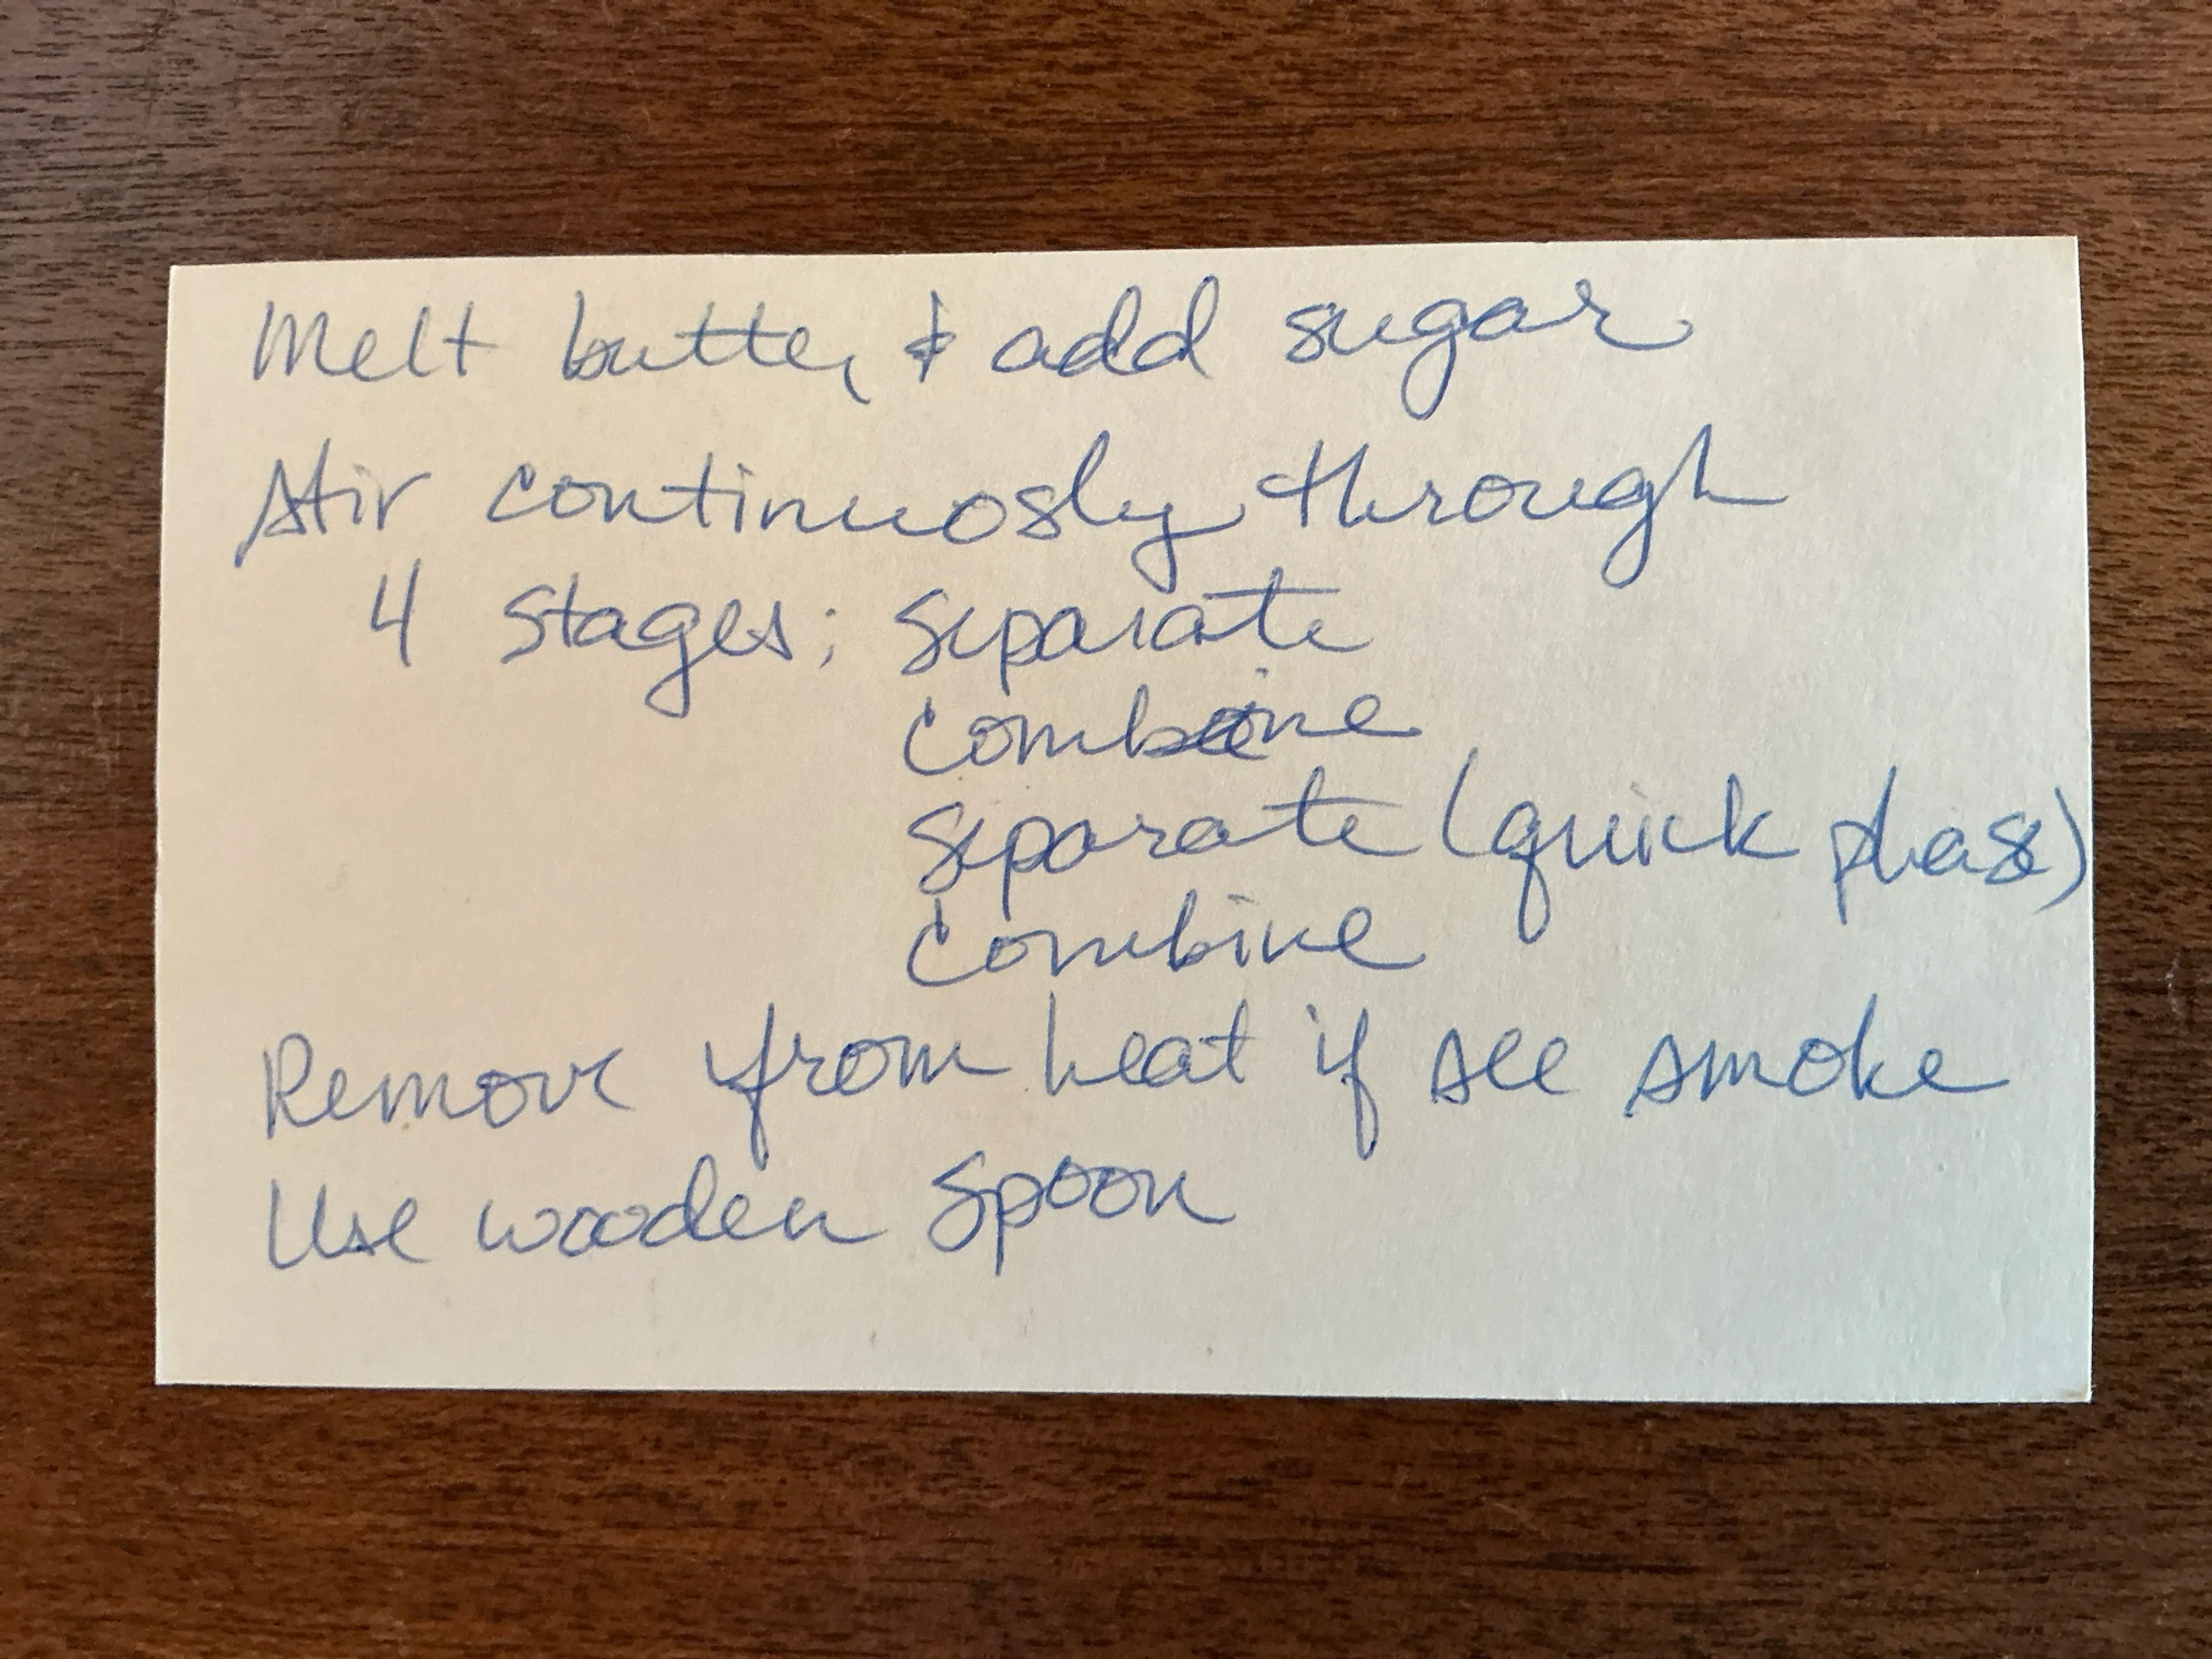 Melt butter & add sugar
Stir continuosly through
4 stages: separate
combine
separate (quick phase)
combine
Remove from heat if see smoke
Use wooden spoon